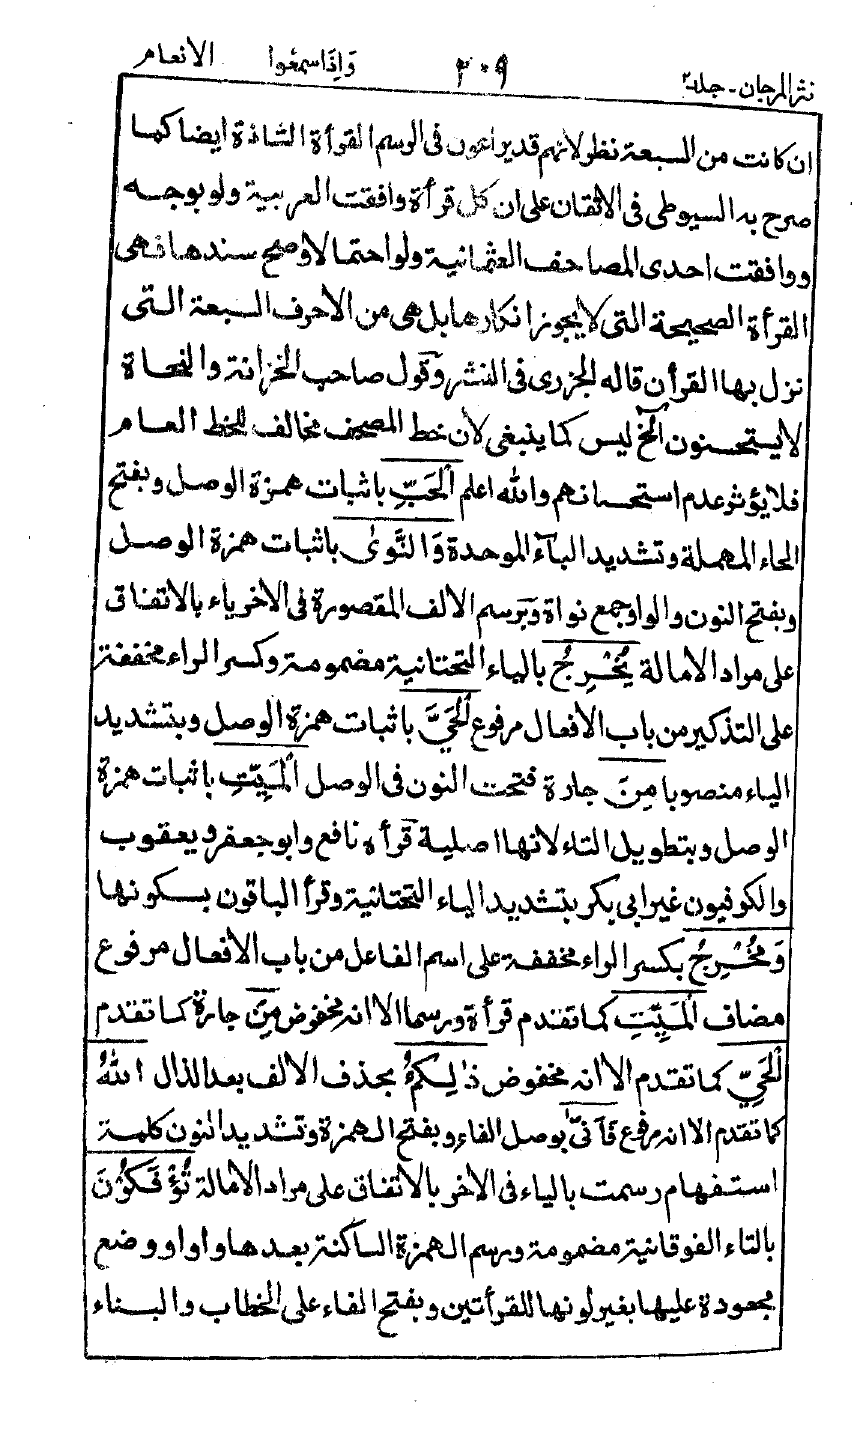 نثر المرجان - جلد۲ ۲۰۹ وَاِذَا سمعُوا الانعام
ان كانت من السبعة نظر لانهم قد يراعون فى الرسم القرأة الشاذة ايضا كما
صرح به السيوطى فى الاتقان على ان كل قرأة وافقت العربية ولو بوجه
ووافقت احدى المصاحف العثمانية ولو احتمالا وصح سندها فهى
القرأة الصحيحة التى لا يجوز انكارها بل هى من الاحرف السبعة التى
نزل بها القرأن قاله الجزرى فى النشر وقول صاحب الخزانة والنحاة
لا يستحسنون الخ ليس كما ينبغى لان خط المصحف مخالف للخط العام
فلا يؤثر عدم استحسانهم والله اعلم اَلْحَبِّ باثبات همزة الوصل وبفتح
الحاء المهملة وتشديد البآء الموحدة وَالنَّوٰى باثبات همزة الوصل
وبفتح النون والواو جمع نواة وبرسم الالف المقصورة فى الاخر ياء بالاتفاق
على مراد الامالة يُخْرِجُ بالياء التحتانية مضمومة وكسر الراء مخففة
على التذكير من باب الافعال مرفوع اَلْحَيَّ باثبات همزة الوصل وبتشديد
الياء منصوبا مِنَ جارة فتحت النون فى الوصل اَلْمَيِّتِ باثبات همزة
الوصل وبتطويل التاء لانها اصلية قرأه نافع وابوجعفر ويعقوب
والكوفيون غير ابى بكر بتشديد الياء التحتانية وقرأ الباقون بسكونها
وَمُخْرِجُ بكسر الراء مخففة على اسم الفاعل من باب الافعال مرفوع
مضاف اَلْمَيِّتِ كما تقدم قرأة ورسما الا انه مخفوض مِنَ جارة كما تقدم
اَلْحَيِّ كما تقدم الا انه مخفوض ذٰلِكُمُ بحذف الالف بعد الذال اللهُ
كما تقدم الا انه مرفوع فَاَنّٰى بوصل الفاء وبفتح الهمزة وتشديد النون كلمة
استفهام رسمت بالياء فى الاخر بالاتفاق على مراد الامالة تُؤْفَكُوْنَ
بالتاء الفوقانية مضمومة ورسم الهمزة الساكنة بعدها واوا ووضع
مجعودة عليها بغير لونها للقرأتين وبفتح الفاء على الخطاب والبناء